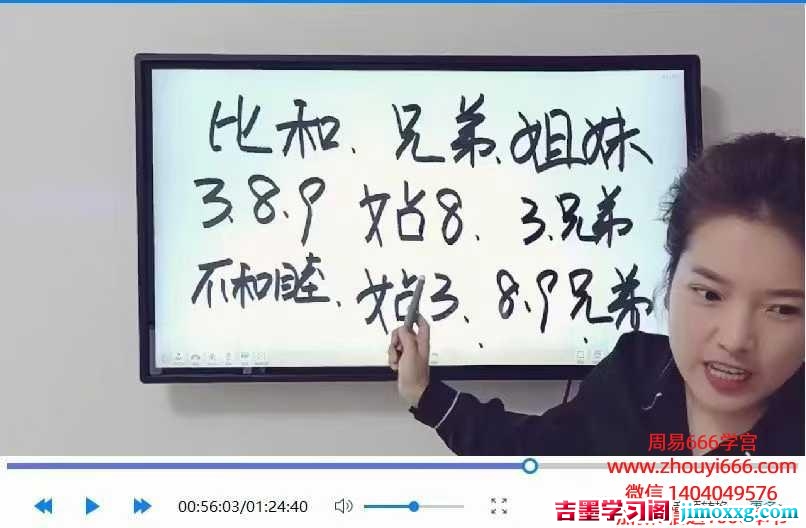 比和、兄弟、姐妹
3.8.9 站8、3兄弟
不和睦、站3、8.9兄弟
周易666学宫
www.zhouyi666.com
微信 1404049576
00:56:03/01:24:40
吉墨学习阁 jimoxxg.com